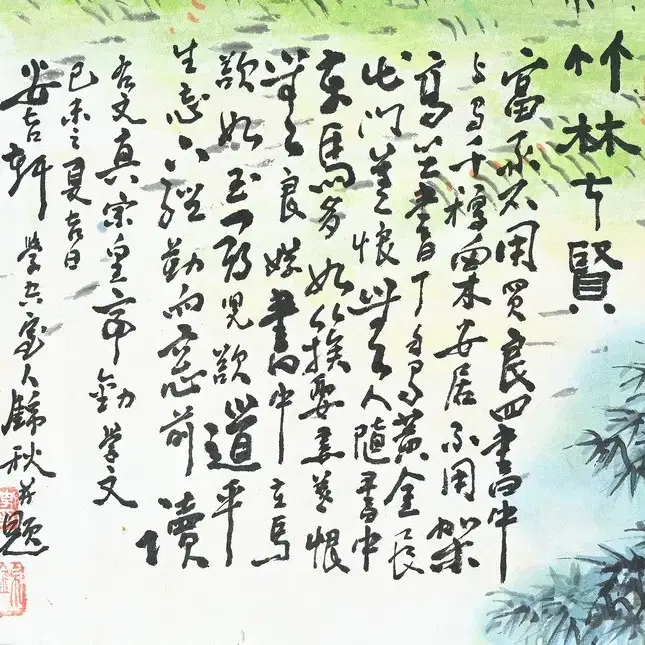 竹林七賢
富家不用買良田書中
自有千鍾粟安居不用架
高堂書中自有黃金屋
出門莫恨無人隨書中
車馬多如簇娶妻莫恨
無良媒書中有女
顏如玉男兒欲遂平
生志六經勤向窗前讀
右文真宗皇帝勸學文
己未之夏吉日
安吉軒學人錦秋并題